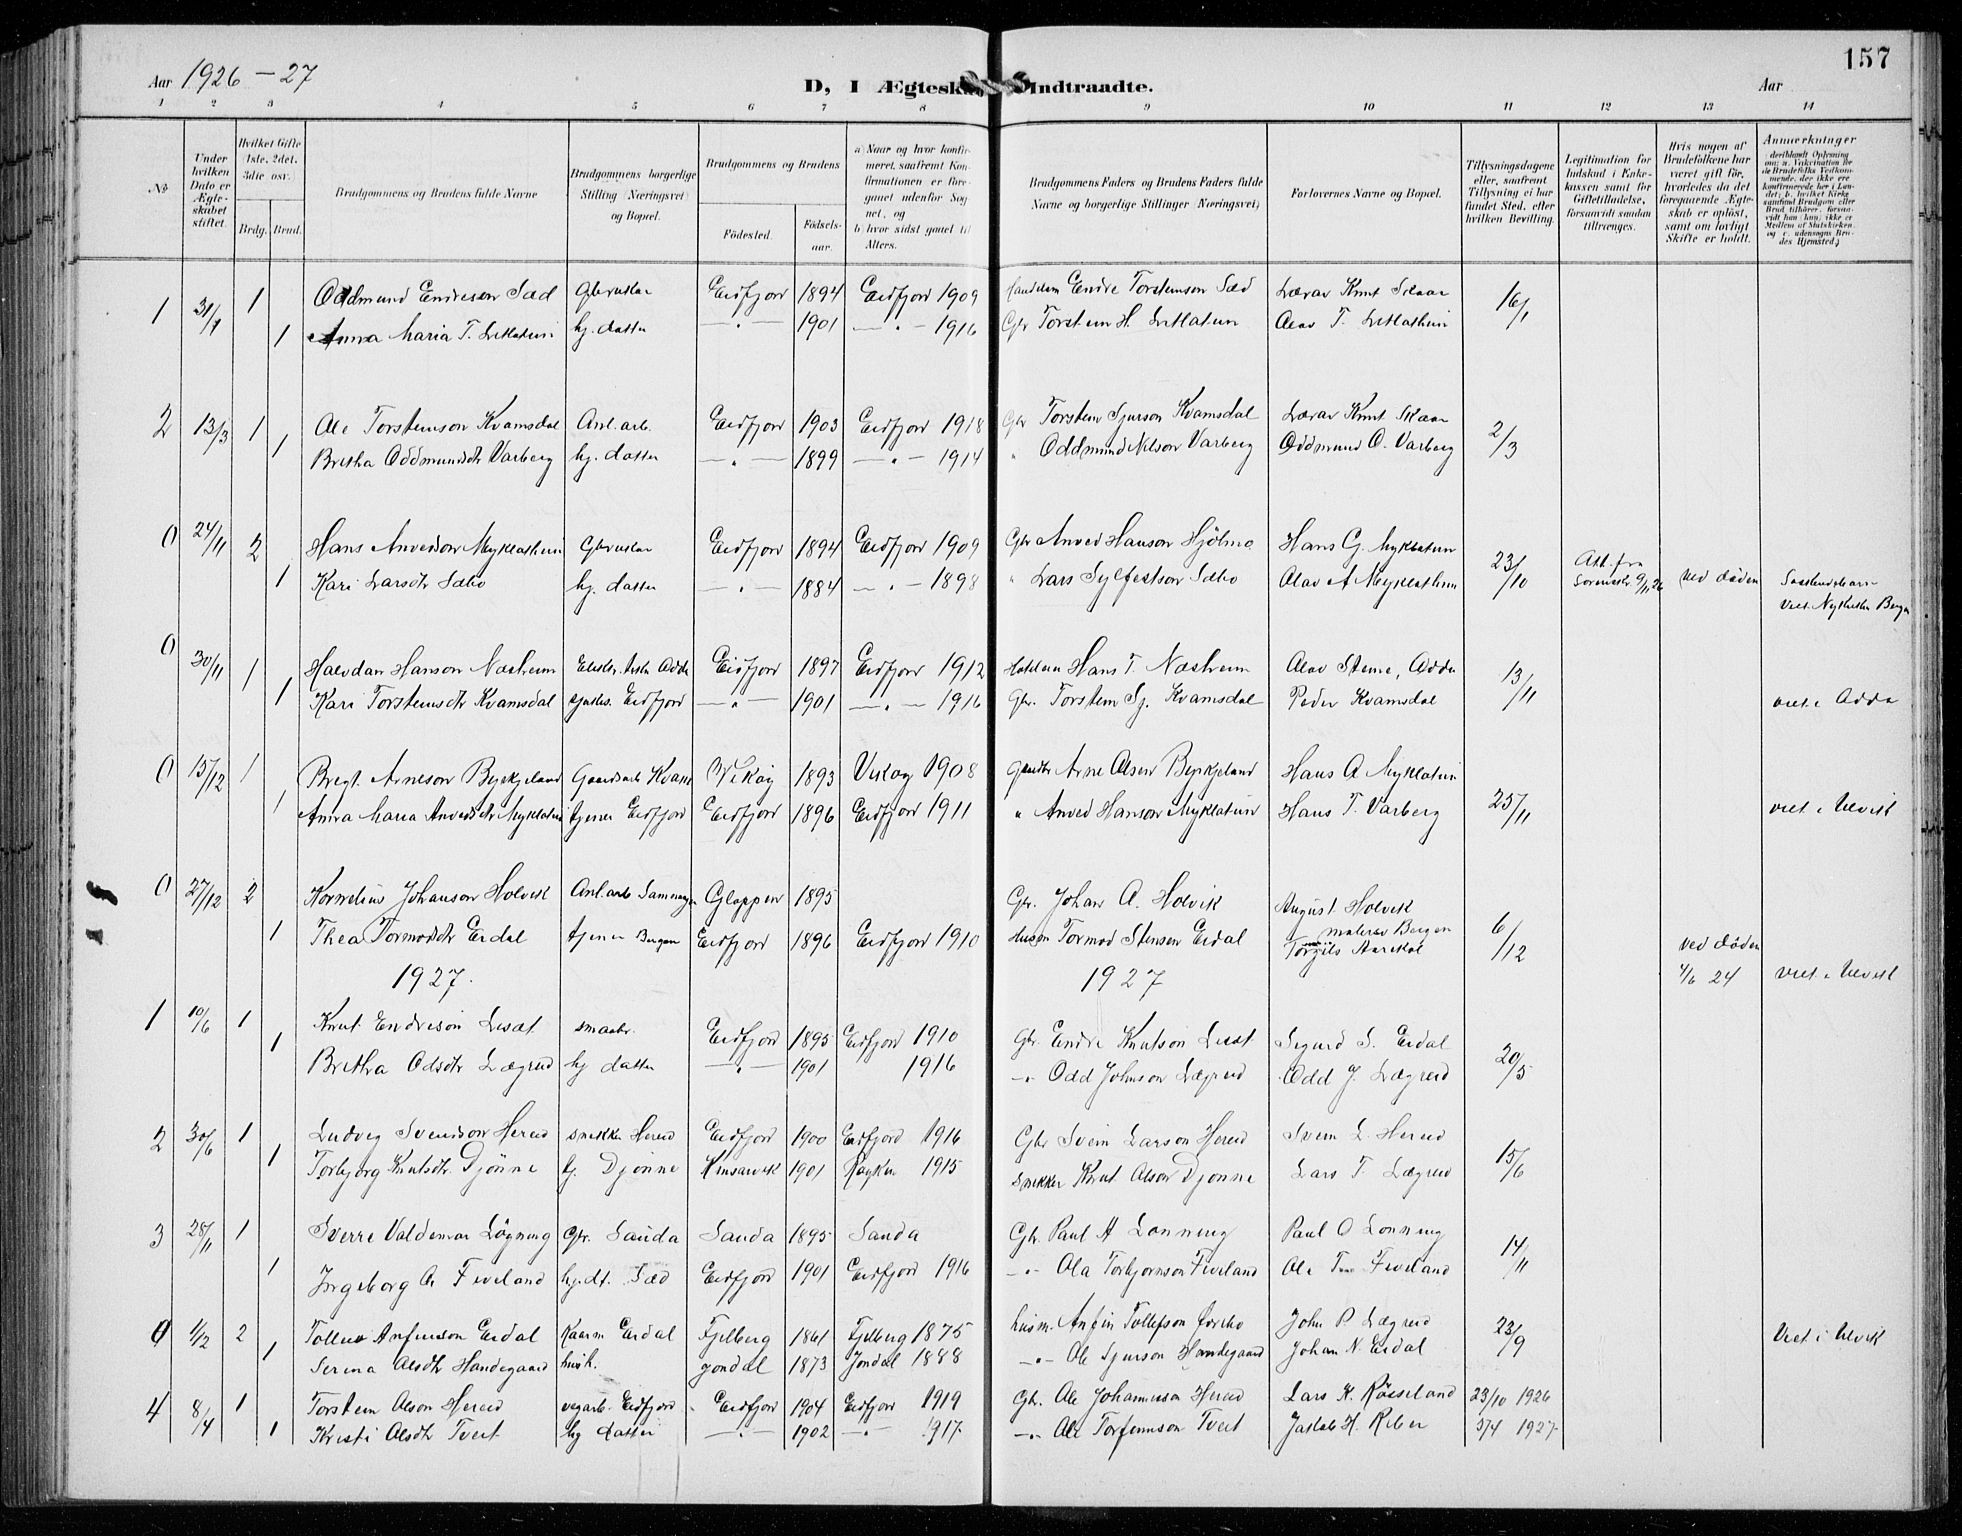 157
Aar 1926 – 27
D, I Ægteskab Indtraadte.
Aar
1 2 3 4 5 6 7 8 9 10 11 12 13 14
No
Under hvilken Dato er Ægteskabet stiftet.
Hvilket Gifte 1ste, 2det, 3die osv.
Brdg. Brud.
Brudgommens og Brudens fulde Navne
Brudgommens borgerlige Stilling (Næringsvei) og Bopæl.
Brudgommens og Brudens
Fødested. Fødselsaar.
Brudgommens Faders og Brudens Faders fulde Navne og borgerlige Stillinger (Næringsvei)
Forlovernes Navne og Bopæl.
Tillysningsdagene eller, saafremt Tillysning ei har fundet Sted, efter hvilken Bevilling.
Hvis nogen af Brudefolkene har været gift før, hvorledes da det foregaaende Ægteskab er opløst, samt om lovligt Skifte er holdt.
Anmerkninger
1 31/1 1 Oddmund Endreson Sæd Gbruker Eidfjord 1894 Eidfjord 1909 Endre Torsteinson Sæd Lærar Knut Skaar 16/1
1 Anna Maria T. hj. datter — " — 1901 — " — 1916 Gbr Torstein H.
2 13/3 1 Ole Torsteinson Kvamsdal Anl. arb. Eidfjord 1903 Eidfjord 1918 Gbr Torstein Sjurson Kvamsdal Lærar Knut Skaar 2/3
1 Britha Oddmundsdtr Varberg hj. datter — " — 1899 — " — 1914 " Oddmund Nilson Varberg Oddmund O. Varberg
0 24/11 2 Hans Anvedson Myklathun Gbruker Eidfjord 1894 Eidfjord 1909 Gbr Anved Hanson Hjølmo Hans G. Myklatun 23/10 Att. fra
1 Kari Larsdtr Sæbo hj. datter — " — 1884 — " — 1898 " Lars Sylfestson Sæbo Olav A Myklathun ved døden
0 30/11 1 Halvdan Hanson Næsheim Odda Eidfjord 1897 Eidfjord 1912 Hans T. Næsheim Olav Steine, Odda 13/11
1 Kari Torsteinsdtr Kvamsdal Eidfjord — " — 1901 — " — 1916 Gbr. Torstein Sj. Kvamsdal Peder Kvamsdal viet i Odda
0 15/12 1 Arneson Byrkjeland Gaardsarb Kvam Vikøy 1893 Vikøy 1908 Arne Olsen Byrkjeland Hans A Myklatun
1 Anna Maria Anvedsdtr Myklatun tjener Eidfjord Eidfjord 1896 Eidfjord 1911 " Anved Hanson Myklatun Hans T. Varberg 25/11 viet i Ulvik
0 27/12 2 Kornelius Johanson Holvik Anl. arb Gloppen 1895 Gbr. Johan A. Holvik August Holvik
maler Bergen
1 Thea Tormodsdtr Eidal tjener Bergen Eidfjord 1896 Eidfjord 1910 Husm Tormod Stensen Eidal Torgils Aarekol 6/12 ved døden
4/6 24 viet i Ulvik
1927. 1927
1 10/6 1 Knut Endreson Liset smaabr. Eidfjord 1895 Eidfjord 1910 Gbr. Endre Knutson Liset Sigurd S. Eidal 20/5
1 Britha Odsdtr Lægreid hj datter — " — 1901 1916 — " — Odd Johnson Lægreid Odd J. Lægreid
2 30/6 1 Ludvig Svendson Hereid snekker Hereid Eidfjord 1900 Eidfjord 1916 Gbr Svein Larson Hereid Svein L. Hereid 15/6
1 Torbjørg Knutsdtr. Djønne tj. Djønne Kinsarvik 1901 Røyken 1915 snekker Knut Olson Djønne Lars T. Lægreid
3 28/11 1 Sverre Valdemar Løgning Gbr. Sauda Sauda 1895 Sauda Gbr. Paul A Lonning Paul O Lonning 14/11
1 Ingeborg O. Fiveland hj. dt. Sæd Eidfjord 1901 Eidfjord 1916 — " — Ola Torbjørnson Fiveland Ole T. Fiveland
0 1/12 2 Anfinson Eidal Eidal Fjelberg 1861 Fjelberg 1875 husm. Anfin Tollefson John P. Lægreid 23/9 Viet i Ulvik
1 Serina Olsdtr Handegaard Jondal 1873 Jondal 1888 — " — Ole Sjurson Handegaard Johan N. Eidal
4 8/4 1 Torstein Olson Hereid vegarb. Eidfjord Eidfjord 1904 Eidfjord 1919 Gbr. Ole Johannesson Hereid Lars K. Røsseland 23/10 1926
1 Kristi Olsdtr Tveit hj datter — " — 1902 — " — 1917 — " — Ole Torfinnson Tveit Jakob H. 3/4 1927